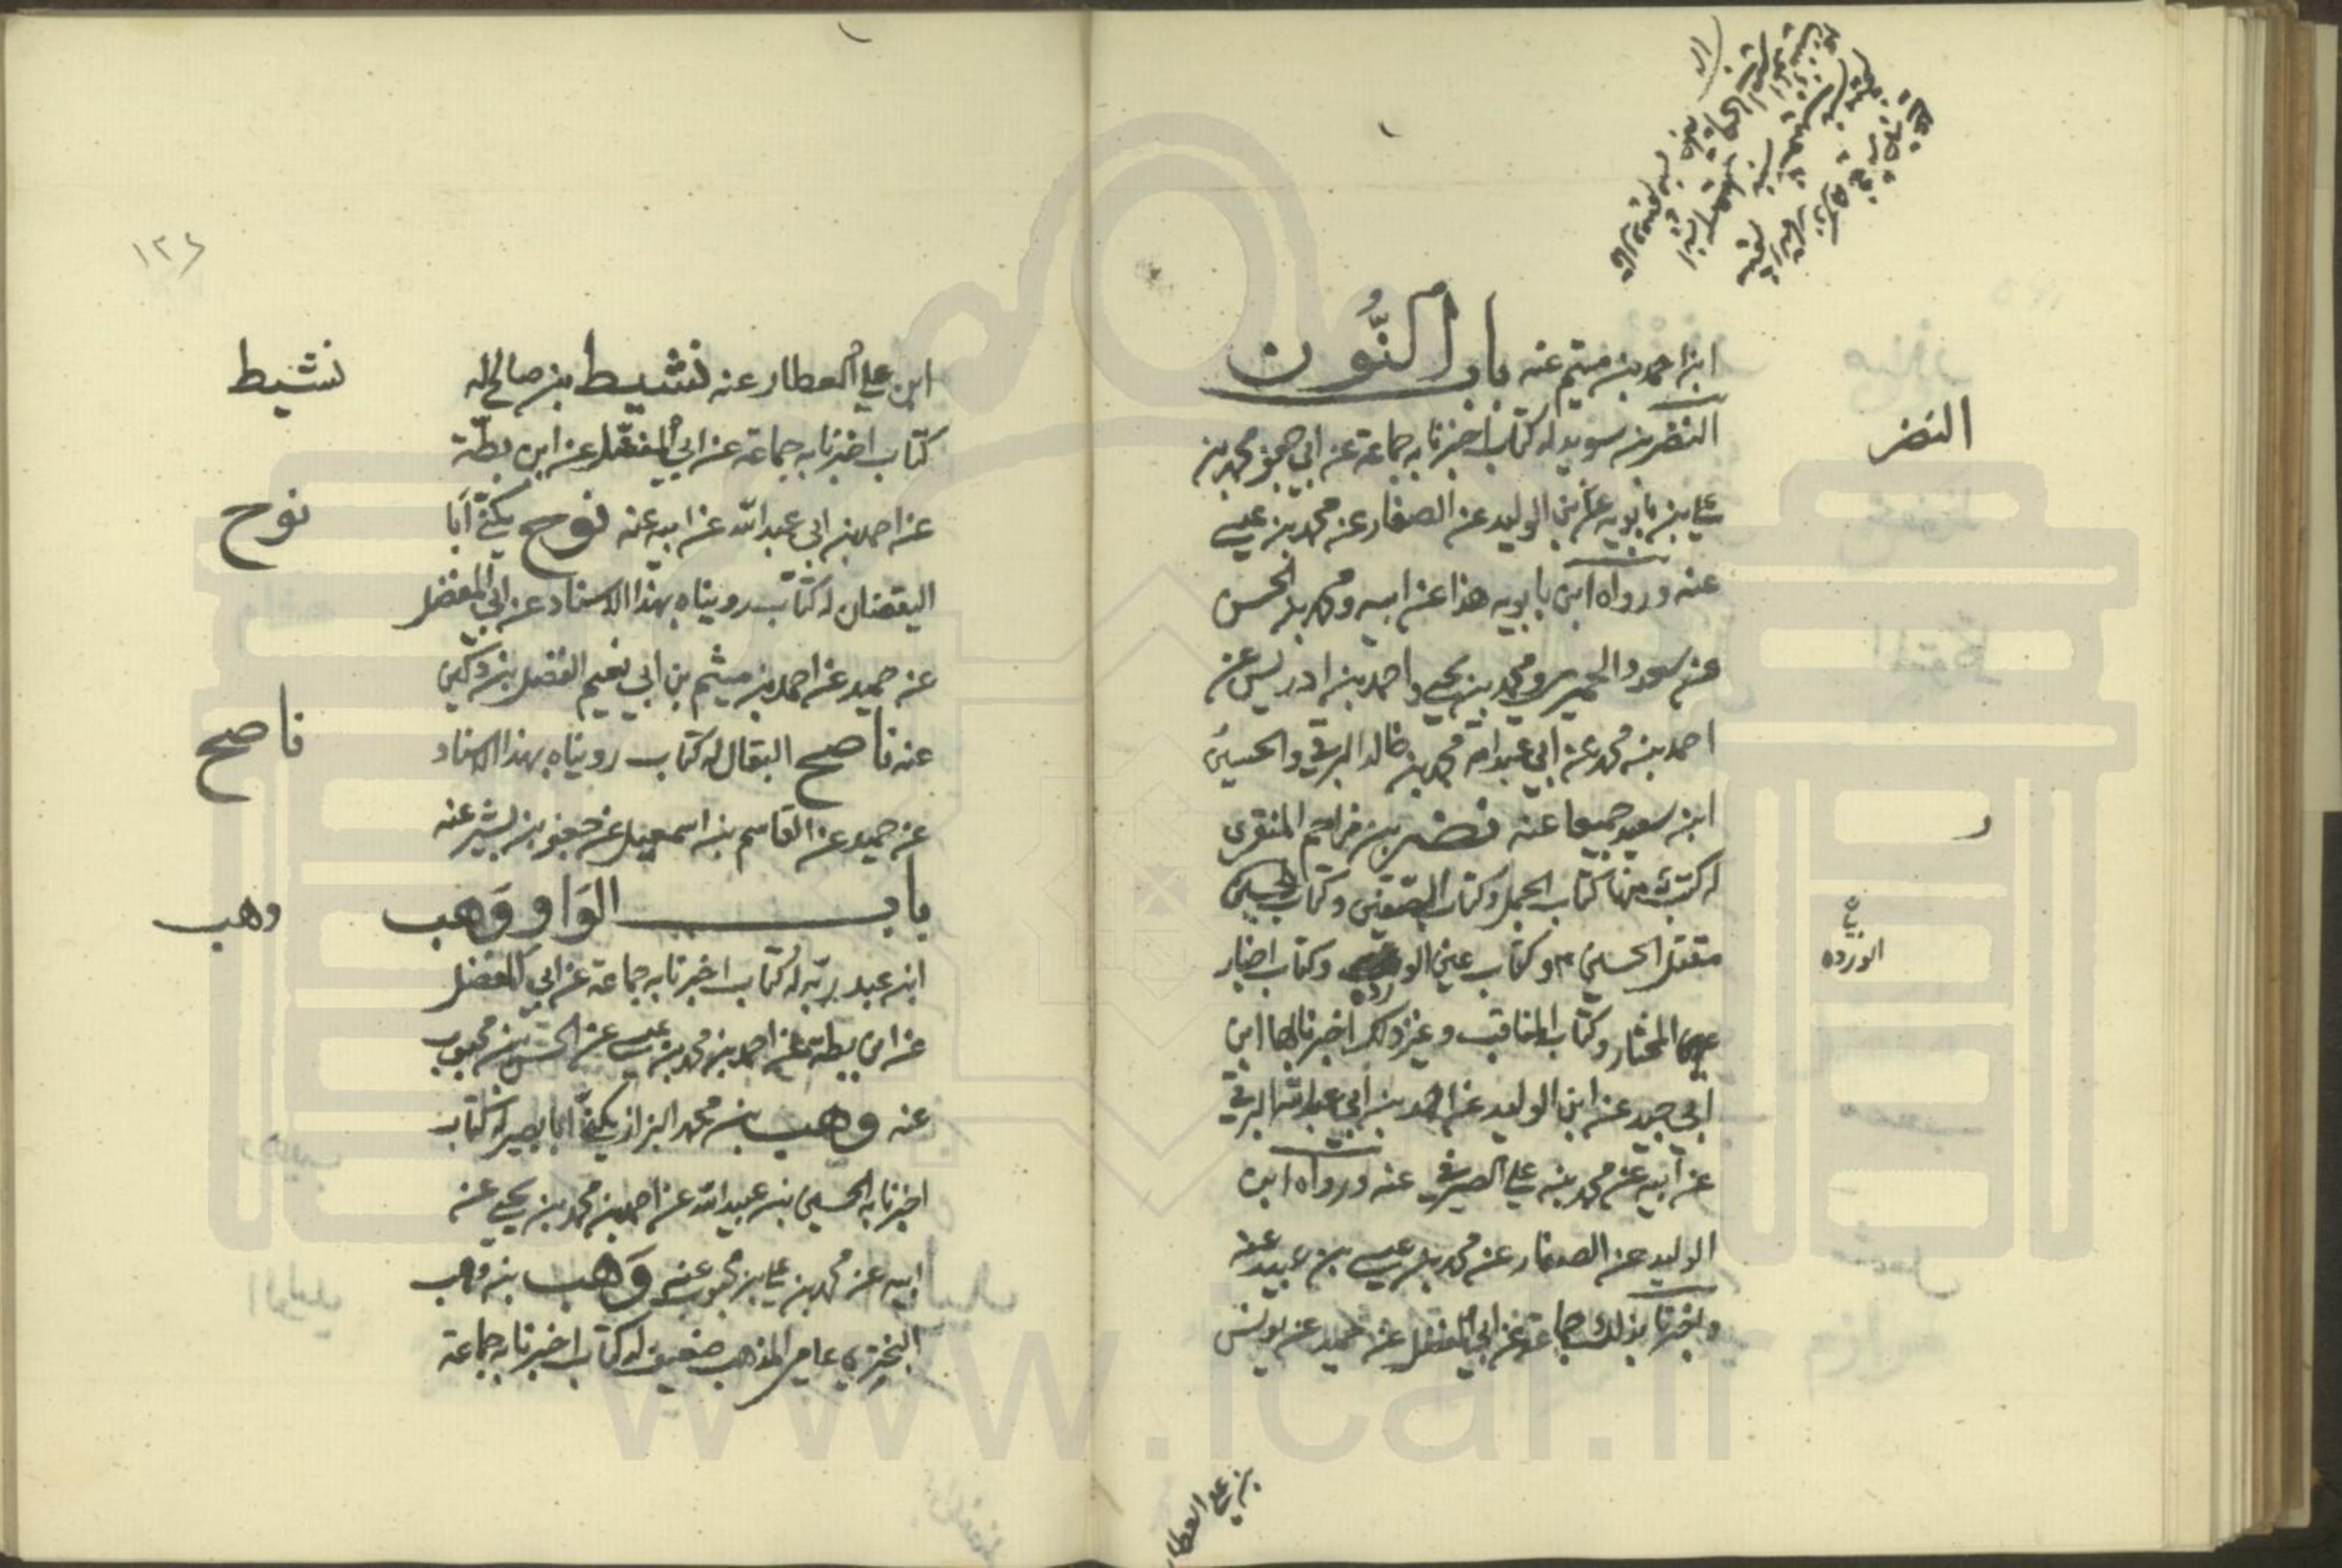 ابن احمد بن ميثم عنه باب النُّون
النضر بن سويد له كتاب اخبرنا به جماعة عن ابي جعفر محمد بن
علي بن بابويه عن ابن الوليد عن الصفار عن محمد بن عيسى
عنه ورواه ابن بابويه هذا عن ابيه ومحمد بن الحسن
عن سعد والحميري ومحمد بن يحيى واحمد بن ادريس عن
احمد بن محمد عن ابي عبد الله محمد بن خالد البرقي والحسين
ابن سعيد جميعا عنه نصر بن مزاحم المنقري
له كتب منها كتاب الجمل وكتاب الصفين وكتاب
مقتل الحسين ع وكتاب عين الوردة وكتاب اخبار
المختار وكتاب المناقب وغير ذلك اخبرنا بها ابن
ابي جيد عن ابن الوليد عن احمد بن ابي عبد الله البرقي
عن ابيه عن محمد بن علي الصيرفي عنه ورواه ابن
الوليد عن الصفار عن محمد بن عيسى بن عبيد عنه
واخبرنا بذلك جماعة عن ابي المفضل عن حميد عن يونس
بن علي العطار
النضر
ر
الوردة
١٢٤
ابن علي العطار عنه نشيط بن صالح له
كتاب اخبرنا به جماعة عن ابي المفضل عن ابن بطّة
عن احمد بن ابي عبد الله عن ابيه عنه نوح يكنّى أبا
اليقضان له كتاب رويناه بهذا الاسناد عن ابي المفضل
عن حميد عن احمد بن ميثم بن ابي نعيم الفضل بن دكين
عنه ناصح البقال له كتاب رويناه بهذا الاسناد
عن حميد عن القاسم بن اسمعيل عن جعفر بن بشير عنه
باب الوَاو وَهب
ابن عبد ربّه له كتاب اخبرنا به جماعة عن ابي المفضل
عن ابن بطة عن احمد بن محمد بن عيسى عن الحسن بن محبوب
عنه وهب بن محمد البزاز يكنّى ابا بصير له كتاب
اخبرنا به الحسين بن عبيد الله عن احمد بن محمد بن يحيى عن
ابيه عن محمد بن علي بن محبوب عنه وَهب بن وهب
البختري عامي المذهب ضعيف له كتاب اخبرنا به جماعة
نشيط
نوح
ناصح
وهب
www.ical.ir